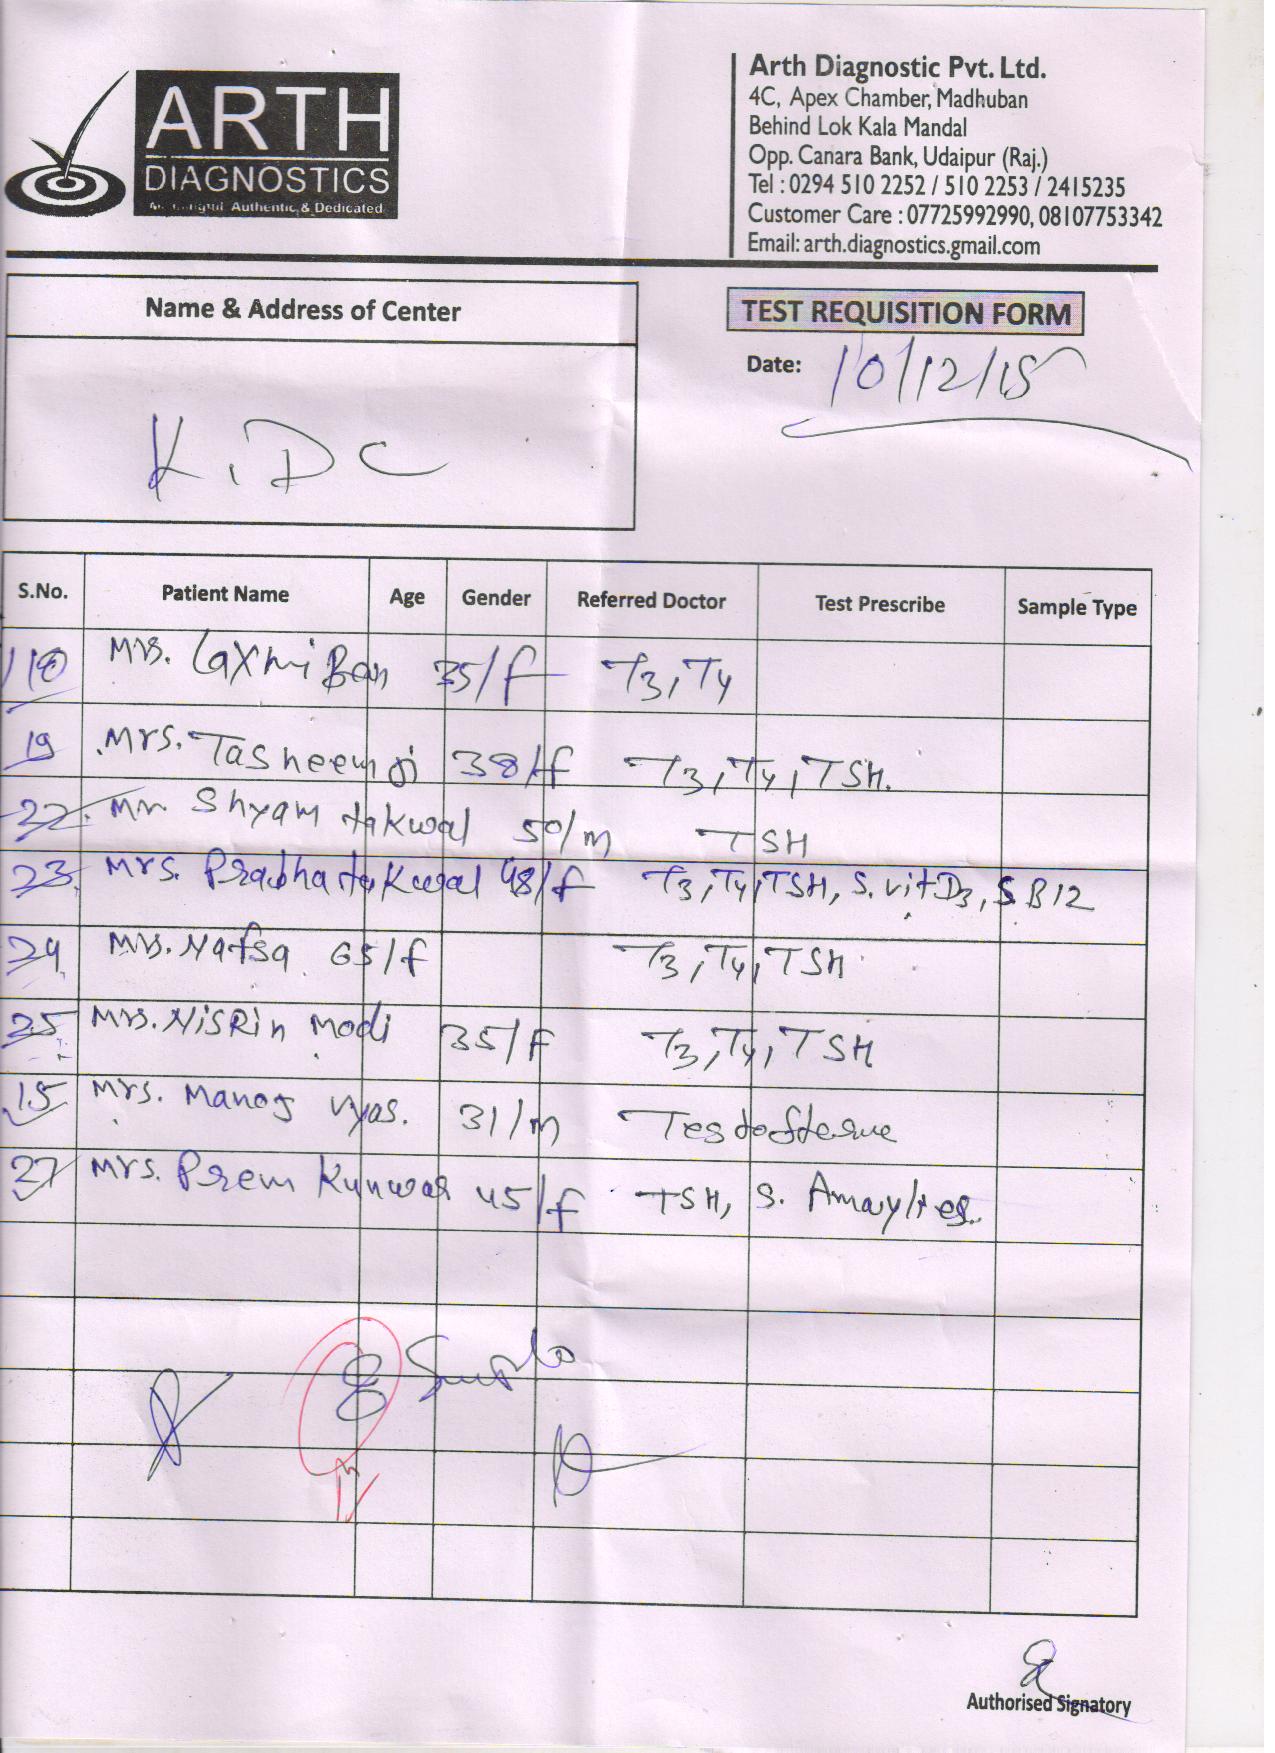 ARTH
DIAGNOSTICS
Authentic & Dedicated
Arth Diagnostic Pvt. Ltd.
4C, Apex Chamber, Madhuban
Behind Lok Kala Mandal
Opp. Canara Bank, Udaipur (Raj.)
Tel : 0294 510 2252 / 510 2253 / 2415235
Customer Care : 07725992990, 08107753342
Email: arth.diagnostics.gmail.com
Name & Address of Center
K.DC
TEST REQUISITION FORM
Date: 10/12/15
S.No. Patient Name Age Gender Referred Doctor Test Prescribe Sample Type
Mrs. Laxmi Ben 35/f T3, T4
19 Mrs. Tasneem 38/f T3, T4, TSH.
22. Mr. Shyam takwal 50/m TSH
23. Mrs. Prabha takwal 48/f T3, T4, TSH, S. vit D3, S B12
24 Mrs. Nafsa 65/f T3, T4, TSH
25 Mrs. NisRin Modi 35/F T3, T4, TSH
15 Mrs. Manoj vyas. 31/m
27 Mrs. Prem Kunwar 45/f TSH, S.
Authorised Signatory